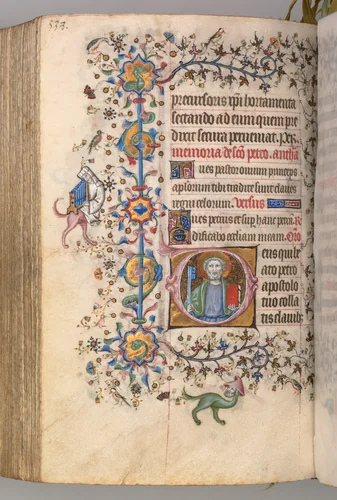 333.
precursoris xpi hortamenta
sectando ad eum quem pre
dixit secura perveniat. Per.
memoria de sco petro. antha
Tu es pastor ovium princeps
aplorum tibi tradite sunt claves
regni celorum. Versus
Tu es petrus et sup hanc petra. R
Edificabo eccliam meam. Oro
Deus qui be
ato petro
apostolo
tuo colla
tis clavib;